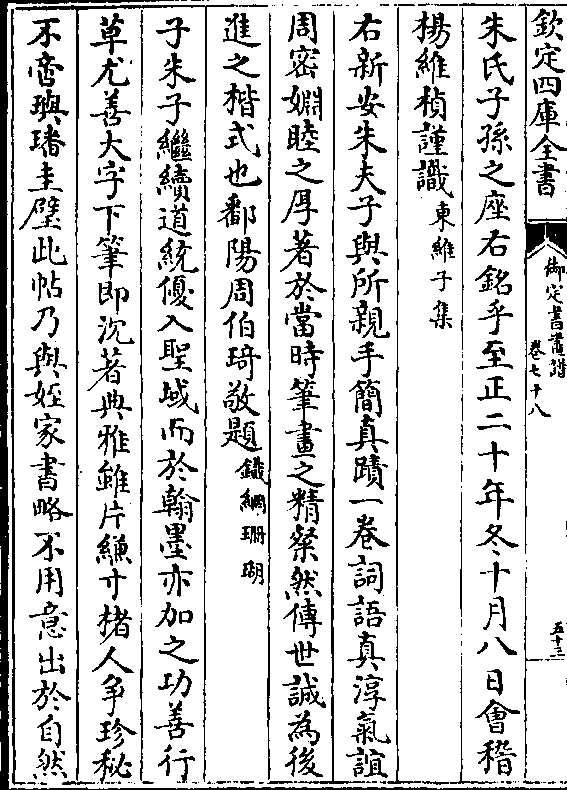 欽定四庫全書
御定書畫譜
卷七十八
五十三
朱氏子孫之座右銘乎至正二十年冬十月八日會稽
楊維楨謹識東維子集
右新安朱夫子與所親手簡真蹟一卷詞語真淳氣誼
周密婣睦之厚著於當時筆畫之精粲然傳世誠為後
進之楷式也鄱陽周伯琦敬題鐵網珊瑚
子朱子繼續道統優入聖域而於翰墨亦加之功善行
草尤善大字下筆即沉著典雅雖片縑寸楮人争珍秘
不啻璵璠圭璧此帖乃與姪家書略不用意出於自然